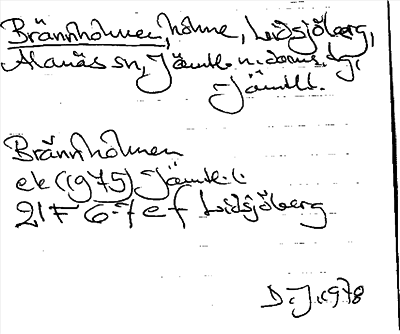 Brännholmen, holme, Lidsjöberg,
Alanäs sn, Jämtl. n. doms. tg,
Jämtl.
Brännholmen
ek (1975) Jämtl.
21F 6-7 ef Lidsjöberg
D.J. 1978